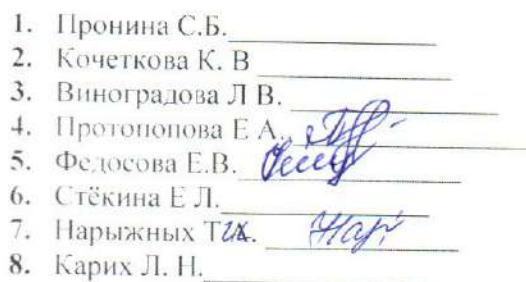 1. Пронина С.Б.
2. Кочеткова К. В
3. Виноградова Л В.
4. Протопопова Е А.
5. Федосова Е.В.
6. Стёкина Е Л.
7. Нарыжных Т Нар
8. Карих Л. Н.